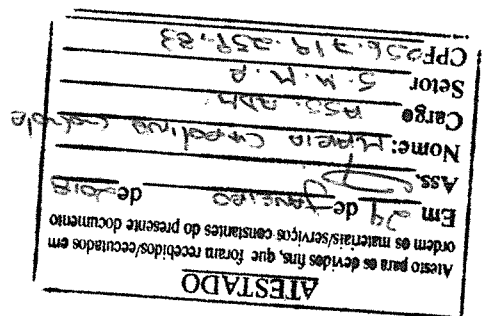 ATESTADO
Atesto para os devidos fins, que foram recebidos/executados em
ordem os materiais/serviços constantes do presente documento
Em 24 de Janeiro de 2018
Ass.
Nome: MARCIA CAROLINA
Cargo ASS. ADM.
Setor S. M. M. A.
CPF 256.719.259,83